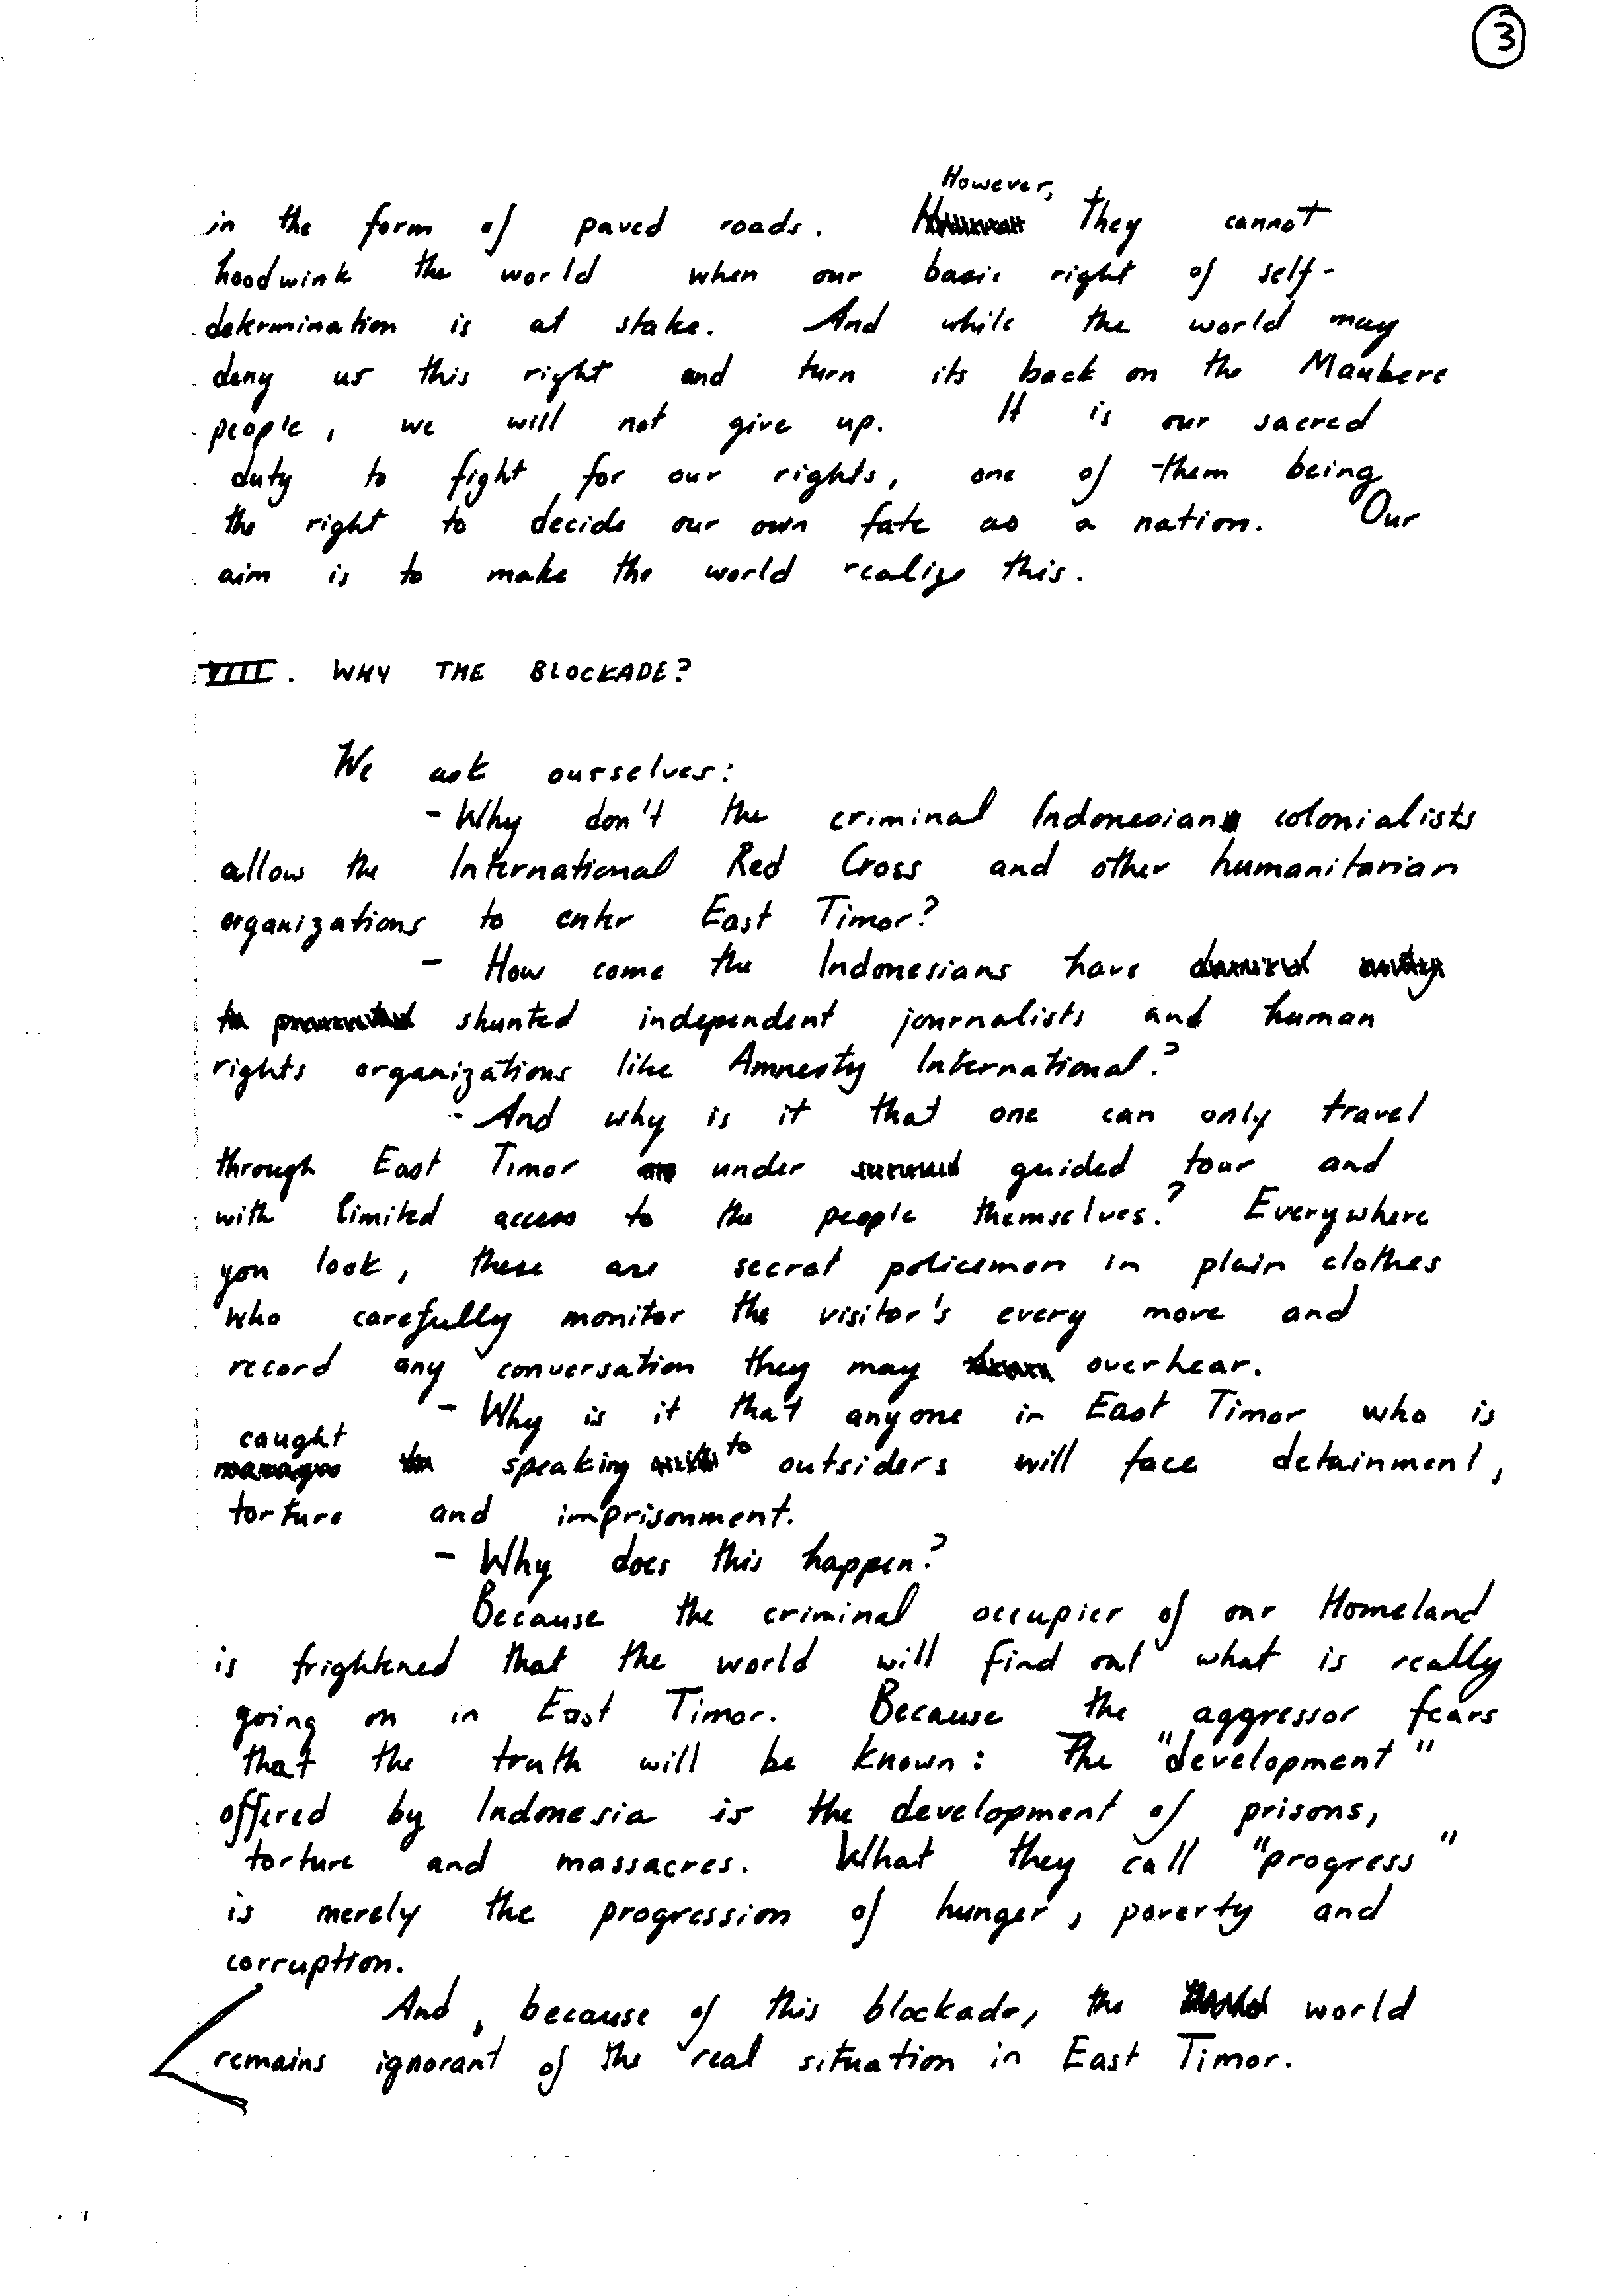 3
However,
in the form of paved roads. they cannot
hoodwink the world when our basic right of self-
determination is at stake. And while the world may
deny us this right and turn its back on the Maubere
people, we will not give up. It is our sacred
duty to fight for our rights, one of them being
the right to decide our own fate as a nation. Our
aim is to make the world realize this.
VIII. WHY THE BLOCKADE?
We ask ourselves:
- Why don't the criminal Indonesian colonialists
allow the International Red Cross and other humanitarian
organizations to enter East Timor?
- How come the Indonesians have
shunted independent journalists and human
rights organizations like Amnesty International?
- And why is it that one can only travel
through East Timor under guided tour and
with limited access to the people themselves? Everywhere
you look, there are secret policemen in plain clothes
who carefully monitor the visitor's every move and
record any conversation they may overhear.
- Why is it that anyone in East Timor who is
caught
speaking to outsiders will face detainment,
torture and imprisonment.
- Why does this happen?
Because the criminal occupier of our Homeland
is frightened that the world will find out what is really
going on in East Timor. Because the aggressor fears
that the truth will be known: The "development"
offered by Indonesia is the development of prisons,
torture and massacres. What they call "progress"
is merely the progression of hunger, poverty and
corruption.
And, because of this blockade, the world
remains ignorant of the real situation in East Timor.